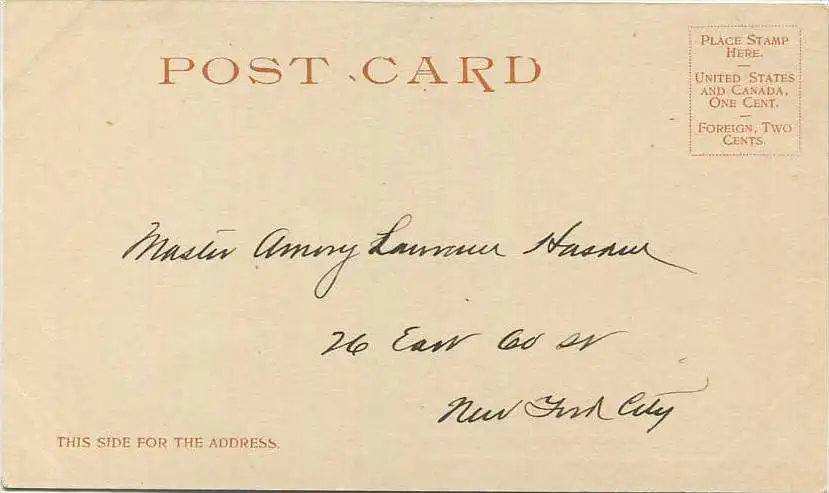 POST CARD
PLACE STAMP
HERE.
UNITED STATES
AND CANADA,
ONE CENT.
FOREIGN, TWO
CENTS.
Master Amory Lawrence
26 East 60 St
New York City
THIS SIDE FOR THE ADDRESS.